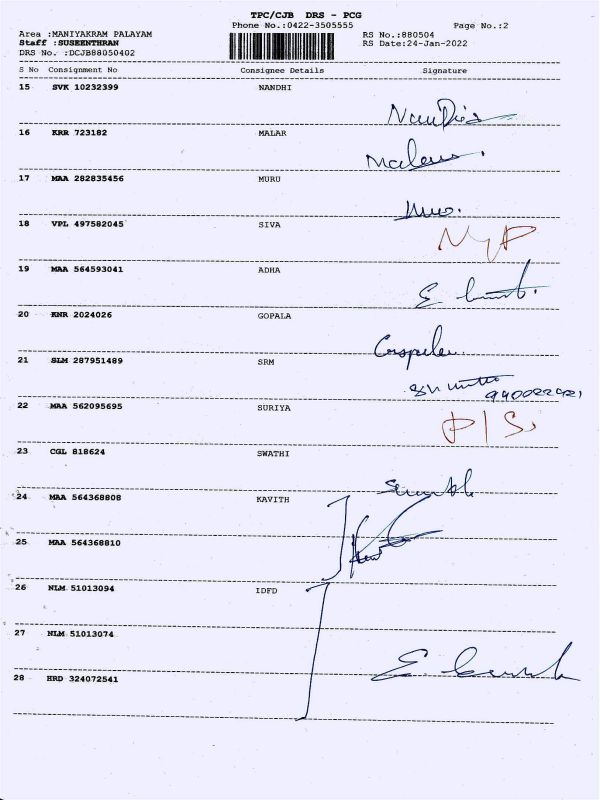 TPC/CJB DRS - PCG
Phone No.:0422-3505555 Page No.:2
Area :MANIYAKRAM PALAYAM
RS No.:880504
Staff :SUSEENTHRAN
RS Date:24-Jan-2022
DRS No. :DCJB88050402
S No Consignment No Consignee Details Signature
15 SVK 10232399 NANDHI
16 KRR 723182 MALAR
17 MAA 282835456 MURU
18 VPL 497582045 SIVA
19 MAA 564593041 ADHA
20 KNR 2024026 GOPALA
21 SLM 287951489 SRM
22 MAA 562095695 SURIYA
23 CGL 818624 SWATHI
24 MAA 564368808 KAVITH
25 MAA 564368810
26 NLM 51013094 IDFD
27 NLM 51013074
28 HRD 324072541